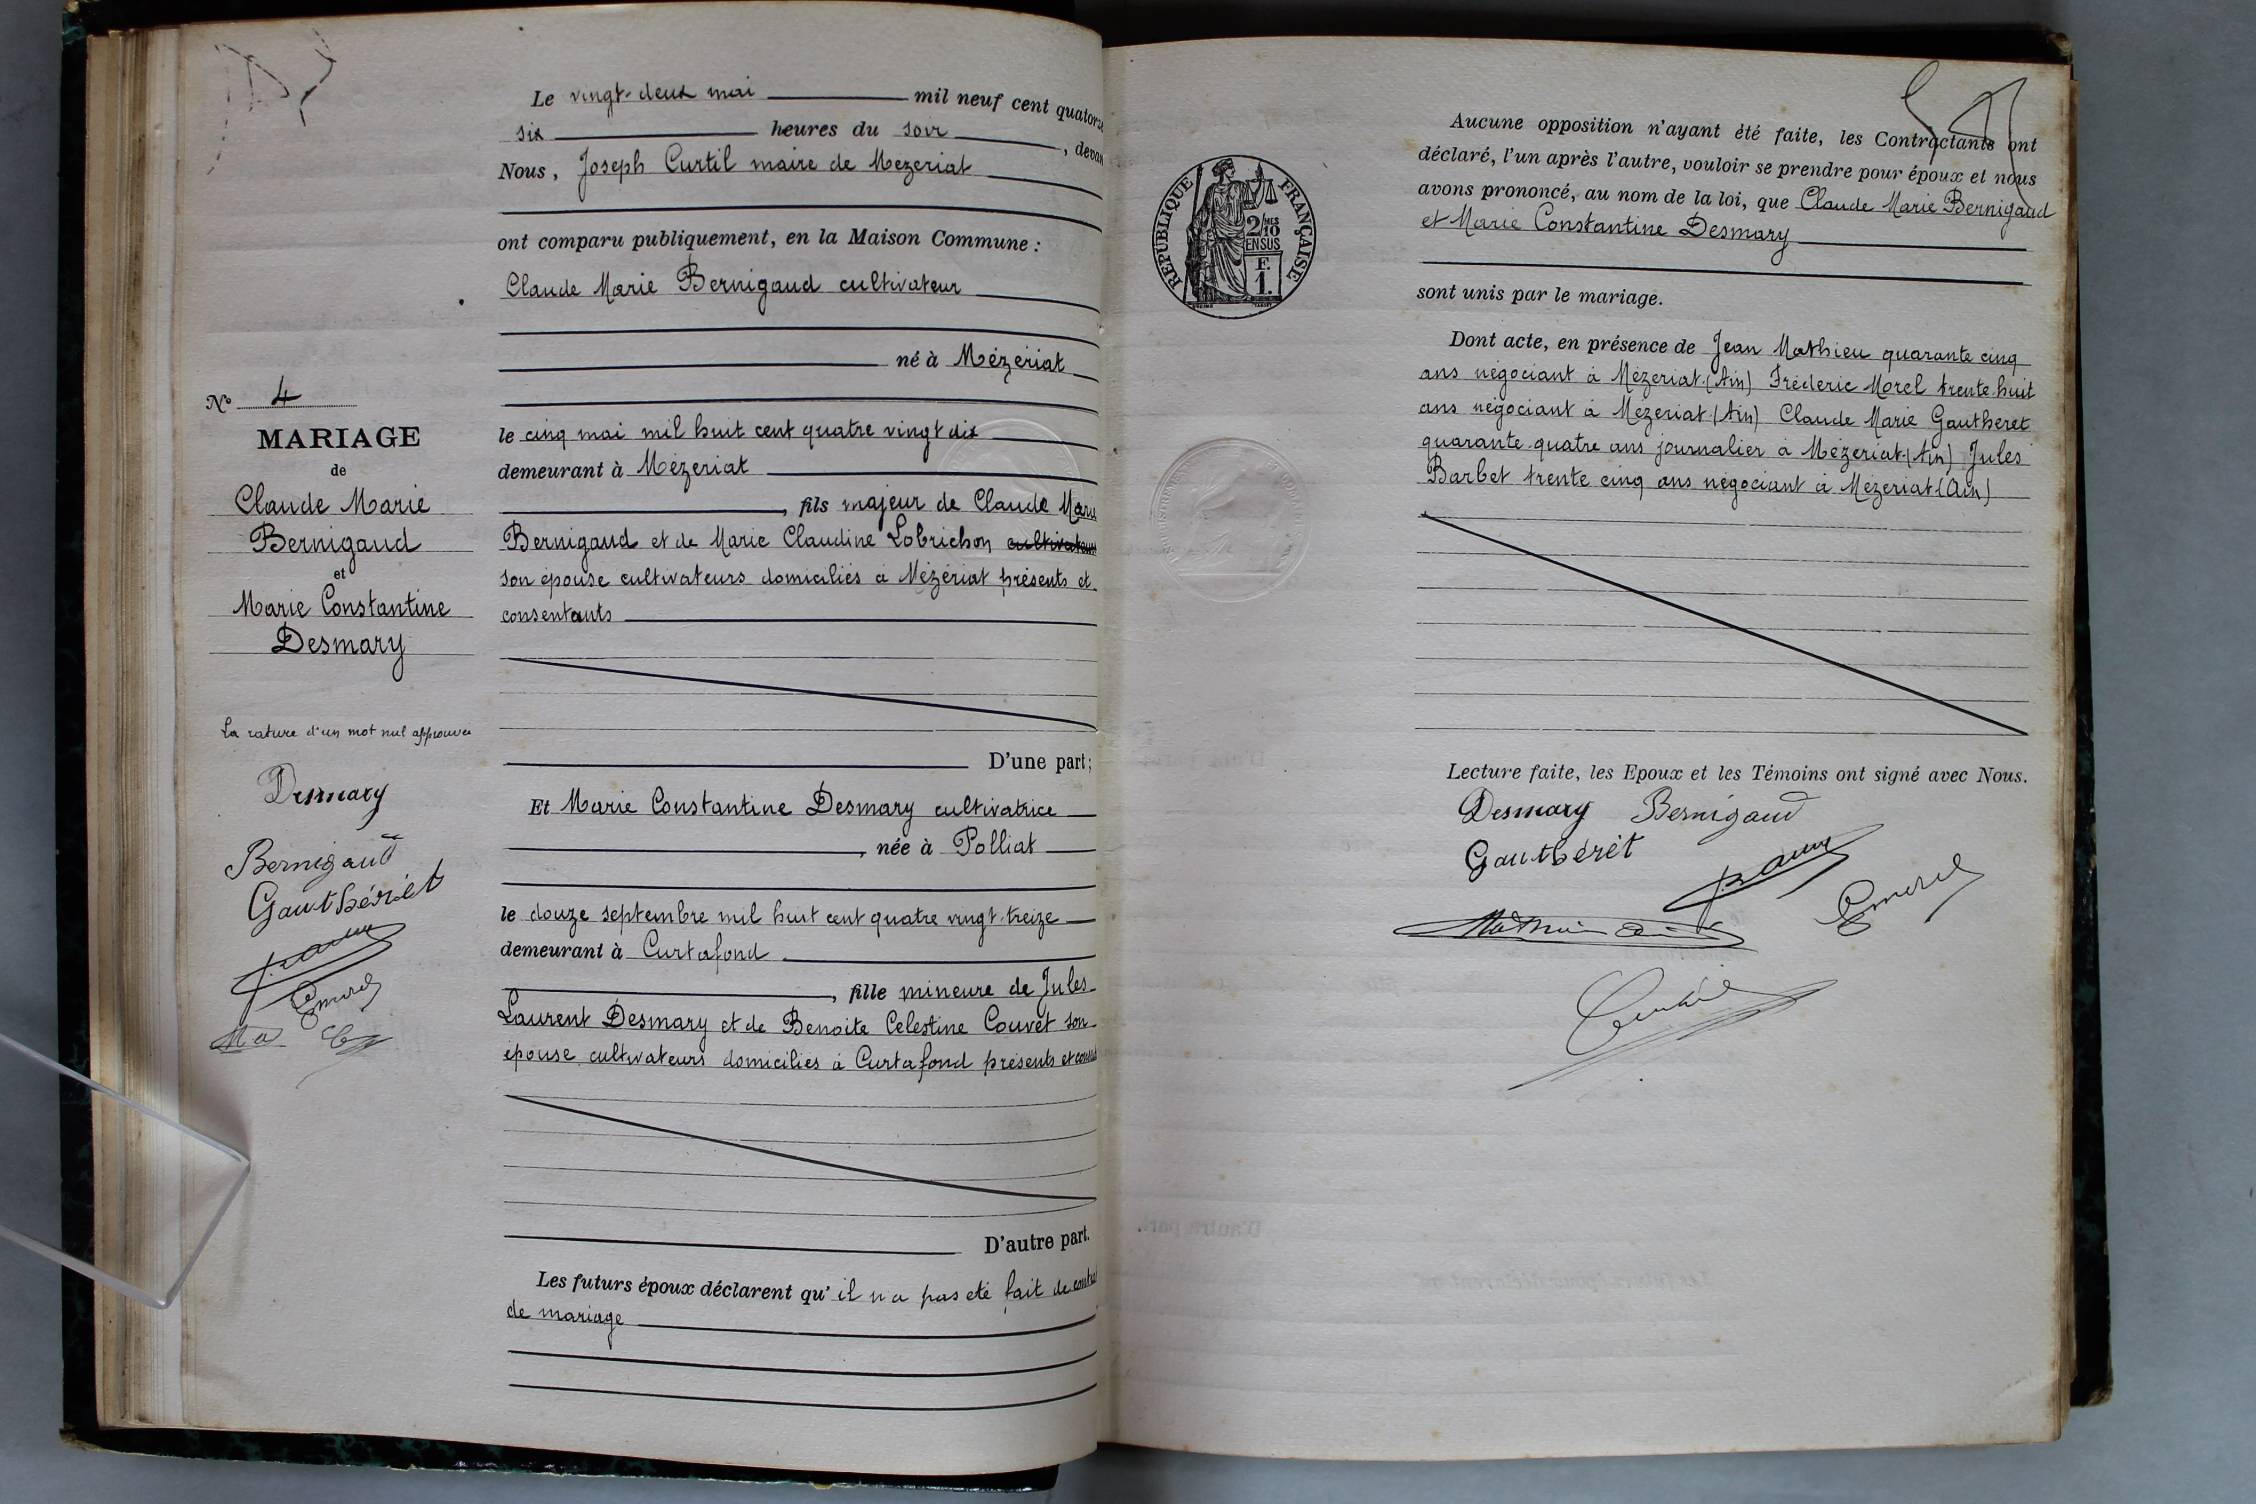 Le vingt-deux mai mil neuf cent quatorze
six heures du soir, devant
Nous, Joseph Curtil maire de Mezeriat
ont comparu publiquement, en la Maison Commune :
Claude Marie Bernigaud cultivateur
né à Mézériat
le cinq mai mil huit cent quatre vingt dix
demeurant à Mézeriat
, fils majeur de Claude Marie
Bernigaud et de Marie Claudine Lobrichon cultivateurs
son épouse cultivateurs domiciliés à Mézériat présents et
consentants
D'une part;
Et Marie Constantine Desmary cultivatrice
, née à Polliat
le douze septembre mil huit cent quatre vingt-treize
demeurant à Curtafond
, fille mineure de Jules
Laurent Desmary et de Benoite Celestine Couvet son
épouse cultivateurs domiciliés à Curtafond présents et
D'autre part.
Les futurs époux déclarent qu'il n'a pas été fait de contrat
de mariage
No 4
MARIAGE
de
Claude Marie
Bernigaud
et
Marie Constantine
Desmary
La rature d'un mot nul approuvée
Desmary
Bernigaud
Gauthérét
Morel
Ma
RÉPUBLIQUE FRANÇAISE
2/10
EN SUS
F.
1.
Aucune opposition n'ayant été faite, les Contractants ont
déclaré, l'un après l'autre, vouloir se prendre pour époux et nous
avons prononcé, au nom de la loi, que Claude Marie Bernigaud
et Marie Constantine Desmary
sont unis par le mariage.
Dont acte, en présence de Jean Mathieu quarante cinq
ans négociant à Mézeriat (Ain) Fréderic Morel trente huit
ans négociant à Mézeriat (Ain) Claude Marie Gautheret
quarante quatre ans journalier à Mézeriat (Ain) Jules
Barbet trente cinq ans négociant à Mézeriat (Ain)
Lecture faite, les Epoux et les Témoins ont signé avec Nous.
Desmary Bernigaud
Gauthérét
Morel
Mathieu
Curtil